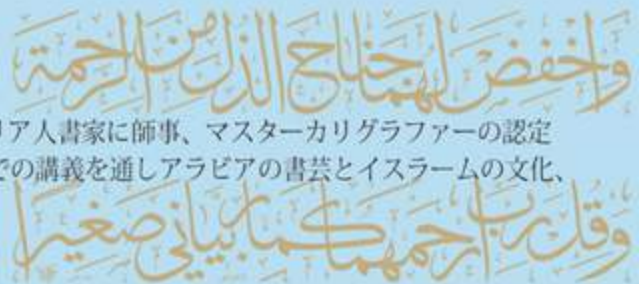 واخفض لهما جناح الذل من الرحمة
リア人書家に師事、マスターカリグラファーの認定
での講義を通しアラビアの書芸とイスラームの文化、
وقل رب ارحمهما كما ربياني صغيرا